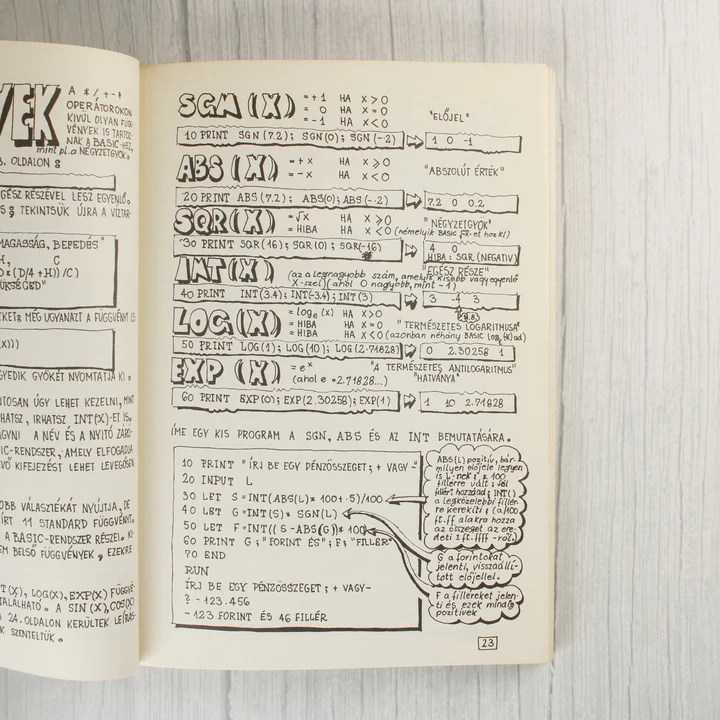 YEK
A */+-↑
OPERÁTOROKON
KIVÜL OLYAN FÜGG-
VÉNYEK IS TARTOZ-
NAK A BASIC-HEZ,
mint pl. a NÉGYZETGYÖK.
OLDALON
EGÉSZ RÉSZÉVEL LESZ EGYENLŐ.
TEKINTSÜK ÚJRA A VÍZTAR-
MAGASSÁG, BEPEDÉS"
H, C
D*(D/4+H))/C)
MEG UGYANAZT A FÜGGVÉNYT IS:
X)))
GYEDIK GYÖKÉT NYOMTATJA KI.
ÚGY LEHET KEZELNI, MINT
HATSZ, ÍRHATSZ INT(X)-ET IS.
A NÉV ÉS A NYITÓ ZÁRÓ-
IC-RENDSZER, AMELY ELFOGADJA
KIFEJEZÉST LEHET LEVEGŐSEN
OBB VÁLASZTÉKÁT NYÚJTJA, DE
ÍRT 11 STANDARD FÜGGVÉNYT.
A BASIC-RENDSZER RÉSZEI.
EM BELSŐ FÜGGVÉNYEK, EZEKRE
T(X), LOG(X), EXP(X) FÜGGVÉ-
TALÁLHATÓ. A SIN(X), COS(X)
A 24. OLDALON KERÜLTEK LEÍRÁS-
SZENTELTÜK.
SGN(X) = +1 HA X>0
= 0 HA X=0
= -1 HA X<0
"ELŐJEL"
10 PRINT SGN(7.2); SGN(0); SGN(-2) 1 0 -1
ABS(X) = +X HA X≥0
= -X HA X<0
"ABSZOLÚT ÉRTÉK"
20 PRINT ABS(7.2); ABS(0); ABS(-.2) 7.2 0 0.2
SQR(X) = √X HA X≥0 "NÉGYZETGYÖK"
= HIBA HA X<0 (némelyik BASIC √-X-et hoz ki)
30 PRINT SQR(16); SQR(0); SQR(-16) 4 0
HIBA: SQR (NEGATIV)
INT(X) "EGÉSZ RÉSZE"
(az a legnagyobb szám, amelyik kisebb vagy egyenlő
X-szel) (ahol 0 nagyobb, mint -1)
40 PRINT INT(3.4); INT(-3.4); INT(3) 3 -4 3
LOG(X) = log e (X) HA X>0
= HIBA HA X=0 "TERMÉSZETES LOGARITMUSA"
= HIBA HA X<0 (azonban néhány BASIC log (X) ad)
50 PRINT LOG(1); LOG(10); LOG(2.71828) 0 2.30258 1
EXP(X) = eˣ
(ahol e = 2.71828...)
"A TERMÉSZETES ANTILOGARITMUS"
"HATVÁNYA"
60 PRINT EXP(0); EXP(2.30258); EXP(1) 1 10 2.71828
ÍME EGY KIS PROGRAM A SGN, ABS ÉS AZ INT BEMUTATÁSÁRA.
10 PRINT "ÍRJ BE EGY PÉNZÖSSZEGET; + VAGY -"
20 INPUT L
30 LET S=INT(ABS(L)*100+.5)/100
40 LET G=INT(S)*SGN(L)
50 LET F=INT((S-ABS(G))*100)
60 PRINT G; "FORINT ÉS"; F; "FILLÉR"
70 END
RUN
ÍRJ BE EGY PÉNZÖSSZEGET; + VAGY-
? -123.456
-123 FORINT ÉS 46 FILLÉR
ABS(L) pozitív, bár-
milyen előjele legyen
is L-nek; * 100
fillérre vált; fél
fillért hozzáad; INT()
a legközelebbi fillér-
re kerekíti; (a/100
ft.ff alakra hozza
az összeget az ere-
deti ft.ffff-ről.)
G a forintokat
jelenti, visszaállí-
tott előjellel.
F a filléreket jelen-
ti és ezek mindig
pozitívek
23